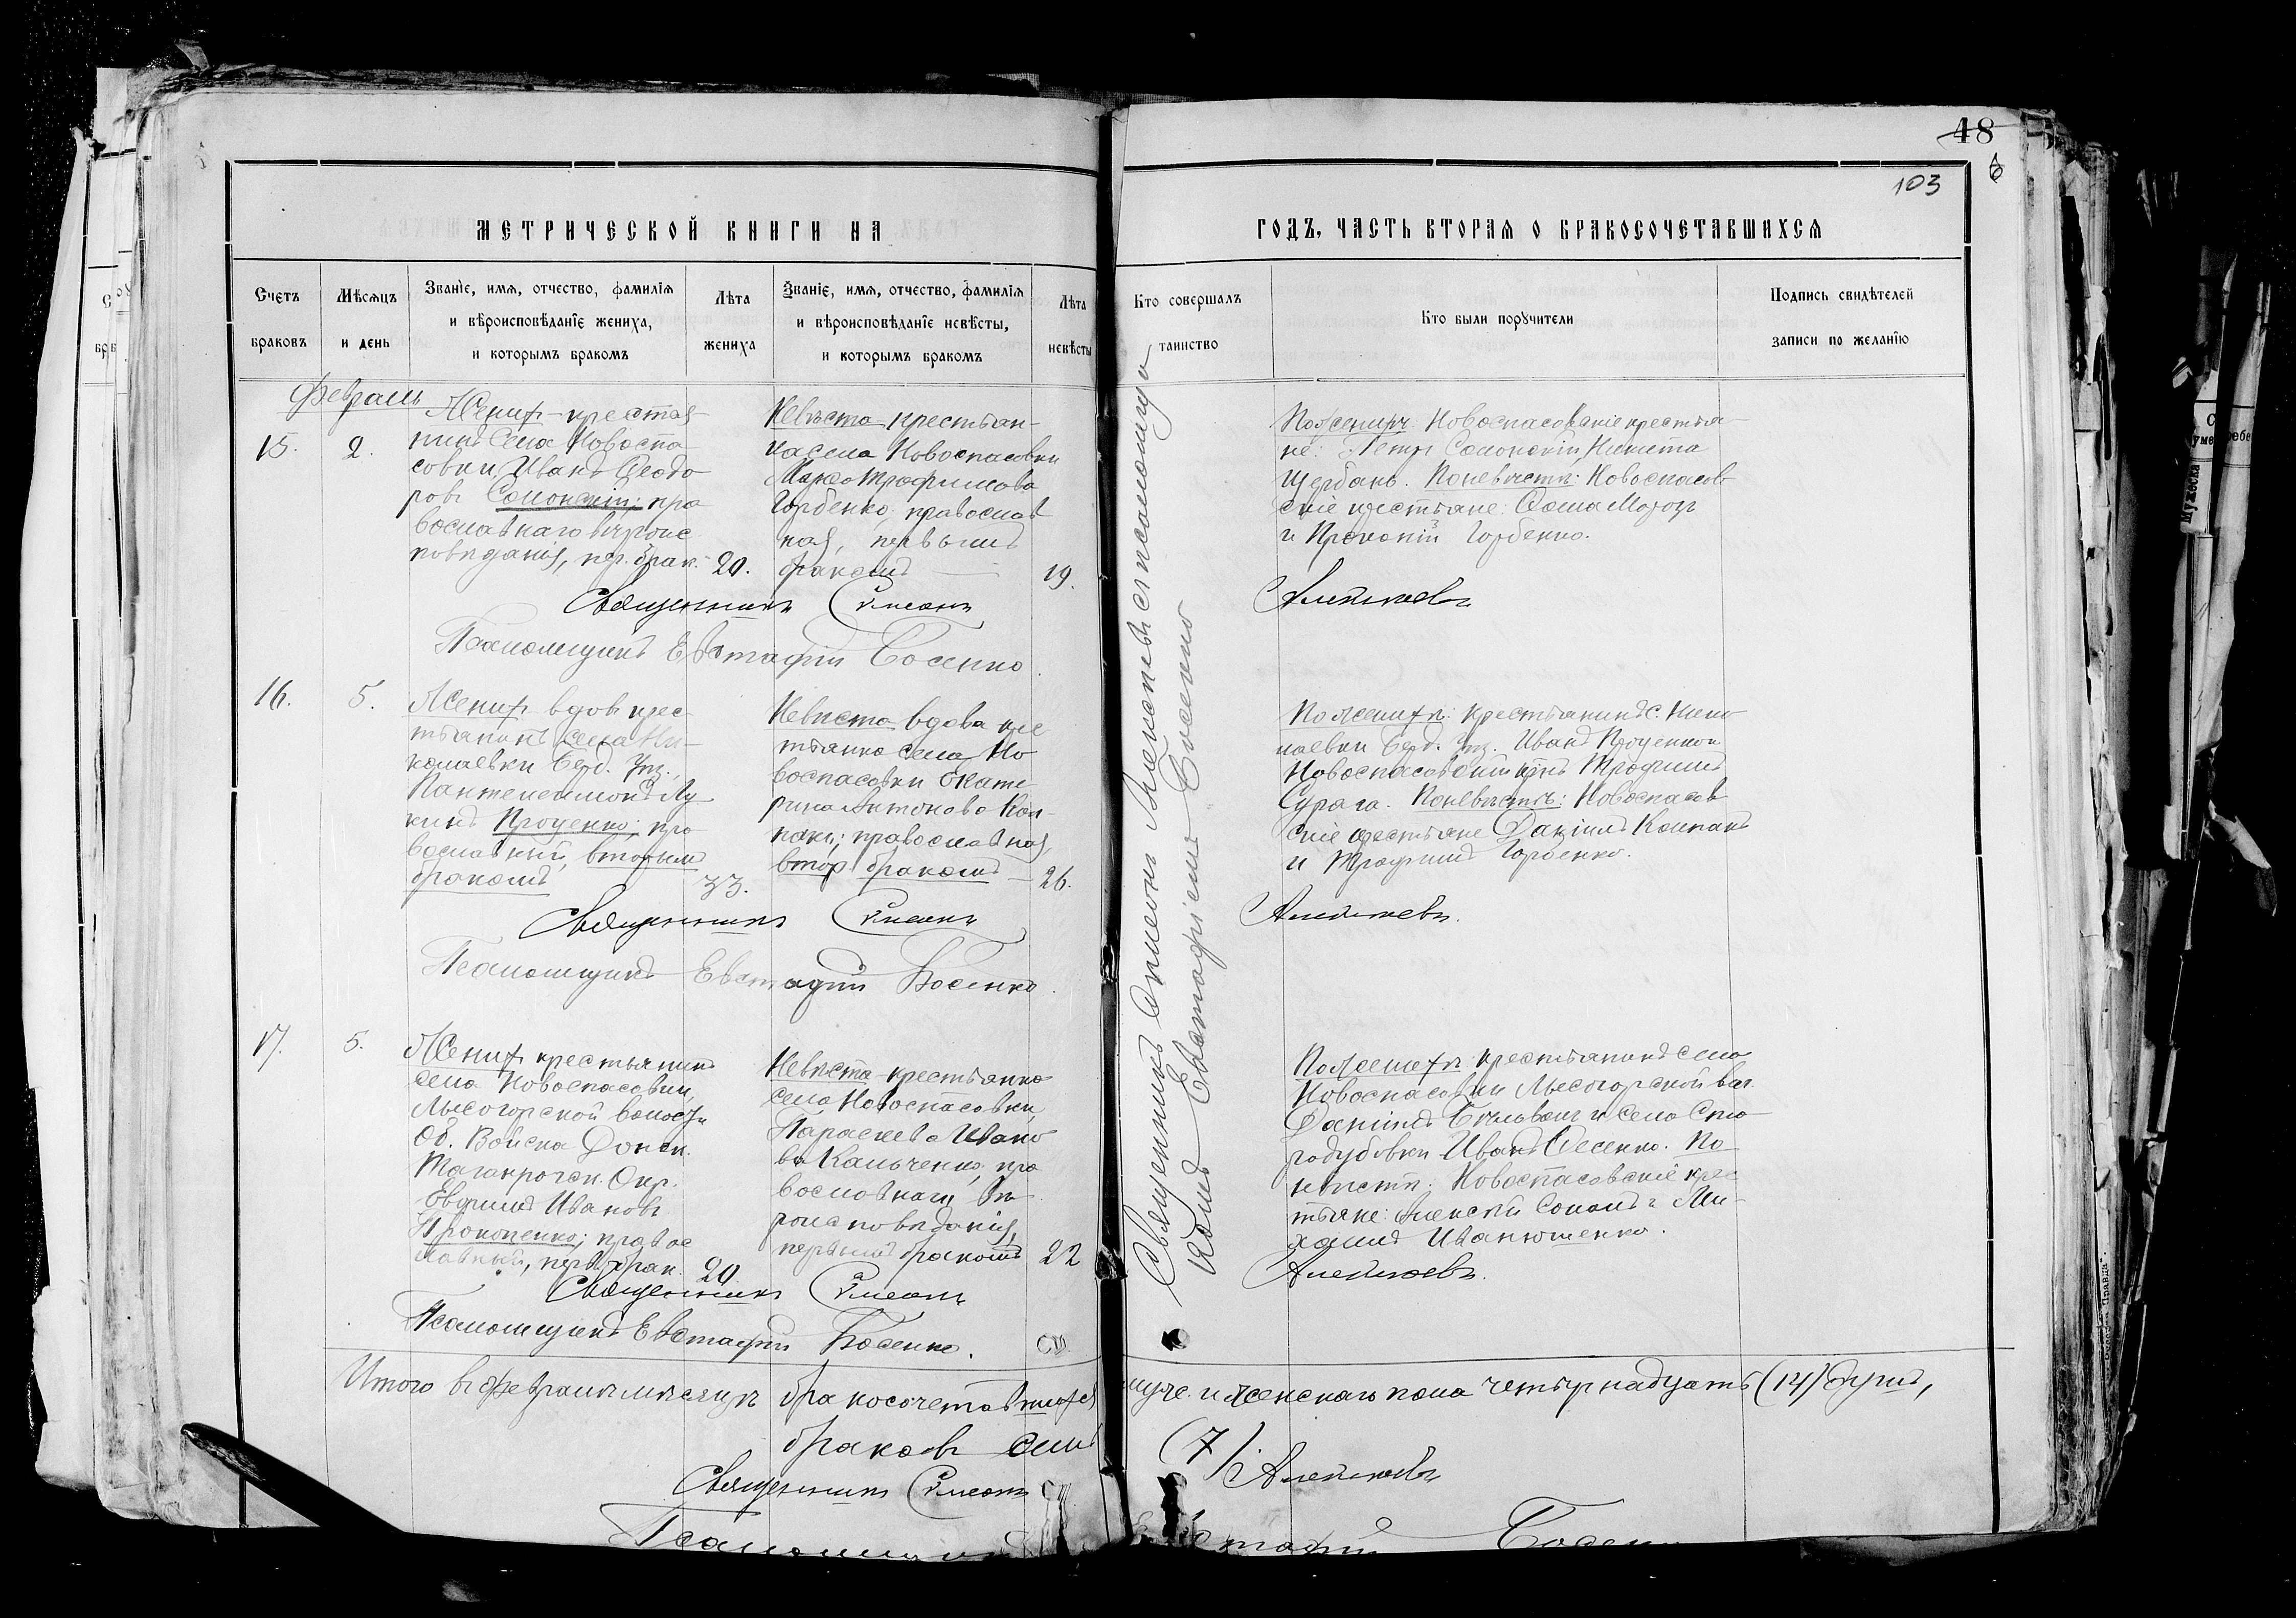 48
103
МЕТРИЧЕСКОЙ КНИГИ НА
ГОДЪ, ЧАСТЬ ВТОРАЯ О БРАКОСОЧЕТАВШИХСЯ
Счетъ
браковъ
Мѣсяцъ
и день
Званіе, имя, отчество, фамилія
и вѣроисповѣданіе жениха,
и которымъ бракомъ
Лѣта
жениха
Званіе, имя, отчество, фамилія
и вѣроисповѣданіе невѣсты,
и которымъ бракомъ
Лѣта
невѣсты
Кто совершалъ
таинство
Кто были поручители
Подпись свидѣтелей
записи по желанію
Февраль
15.
2.
Женихъ крестья-
нинъ села Новоспа
совки Иванъ Ѳеодо
ровъ пра
вославнаго вѣроис
повѣданія, пер. брак.
20.
Невѣста крестьян-
ка села Новоспасовки
Марѳа Трофимова
Горбенко, православ
ная, первымъ
бракомъ
19.
Священникъ Симеонъ
Псаломщикъ Евстафій Босенко.
По женихѣ: Новоспасовскіе крестья-
не: Петръ Никита
Щербань. По невѣстѣ: Новоспасов
скіе крестьяне: Ѳома Морозъ
и Прокопій Горбенко.
Алейниковъ
16.
5.
Женихъ вдовъ крес-
тьянинъ села Ни-
колаевки Берд. Уѣз.,
Пантелеимонъ Лу
кинъ Проценко; пра
вославный, вторымъ
бракомъ
33.
Невѣста вдова кре
стьянка села Но
воспасовки Екате
рина Антонова Кол-
пакъ; православная,
втор. бракомъ
26.
Священникъ Симеонъ
Псаломщикъ Евстафій Босенко.
По женихѣ: крестьянинъ с. Нико
лаевки Берд. Уѣз. Иванъ Проценко и
Новоспасовскій Трофимъ
По невѣстѣ: Новоспасов
скіе крестьяне Даніилъ Колпакъ
и Трофимъ Горбенко.
Алейниковъ.
17.
5.
Женихъ крестьянинъ
села Новоспасовки,
Лысогорской волости
Об. Войска Донск.
Таганрогск. Окр.
Евфимъ Ивановъ
Прокопенко; правос
лавный, перв. брак.
20.
Невѣста крестьянка
села Новоспасовки
Параскева Ивано
ва Кальченко, пра
вославнаго вѣ
роисповѣданія,
первымъ бракомъ
22
Священникъ Симеонъ
Псаломщикъ Евстафій Босенко.
По женихѣ: крестьянинъ села
Новоспасовки Лысогорской вол.
Даніилъ и села Ста
родубовки Иванъ По
невѣстѣ: Новоспасовскіе крес
тьяне: Алексій Соколъ и Ми-
хаилъ Иванюшенко.
Алейниковъ.
Священникъ Симеонъ Алейниковъ съ псаломщи
комъ Евстафіемъ Босенко
Итого въ Февралѣ мѣсяцѣ бракосочетавшихся муж. и женскаго пола четырнадцать (14) душъ,
браковъ семь (7)
Священникъ Симеонъ Алейниковъ
Псаломщикъ Евстафій Босенко